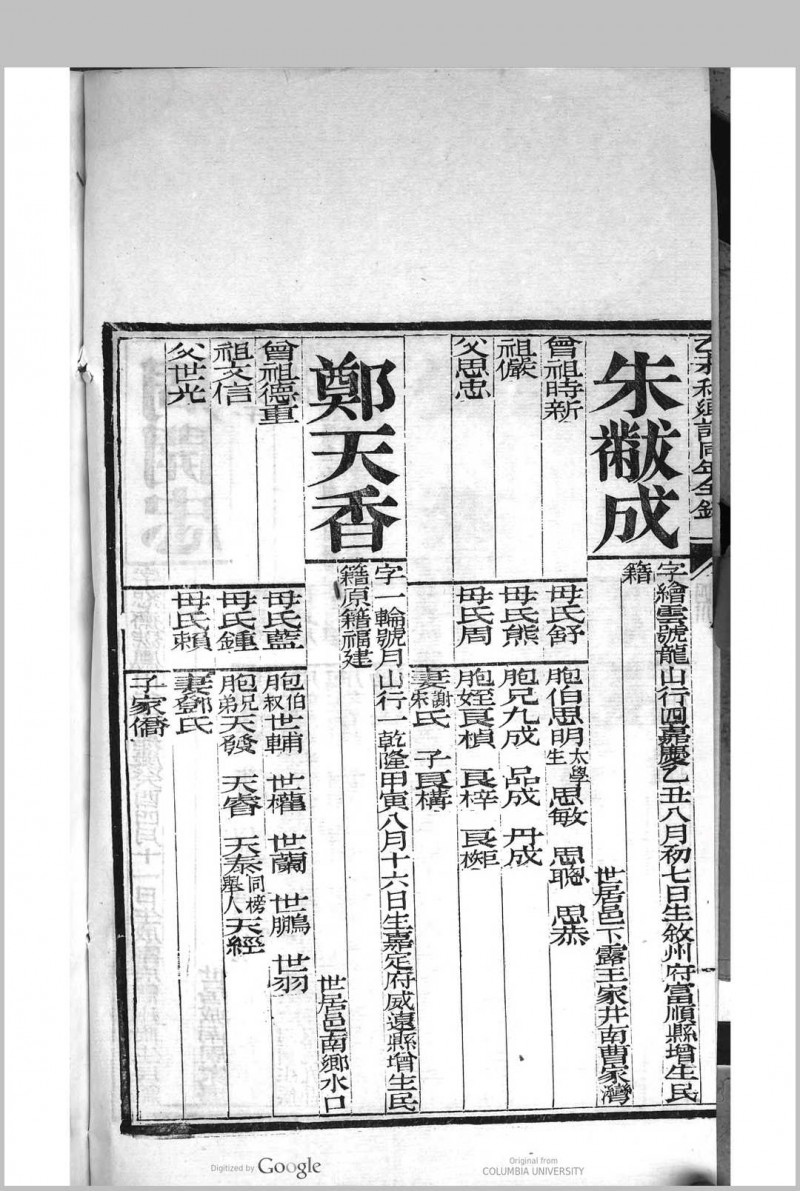 乙未科鄉試同年全錄
朱黻成
字繪雲號龍山行四嘉慶乙丑八月初七日生敘州府富順縣增生民
籍
世居邑下露王家井南曹家灣
曾祖時新
母氏舒
胞伯思明太學生 思敏 思聰 思恭
祖儼
母氏熊
胞兄九成 品成 丹成
父思忠
母氏周
胞姪良楨 良梓 良榘
妻謝宋氏 子良構
鄭天香
字一輪號月山行一乾隆甲寅八月十六日生嘉定府威遠縣增生民
籍原籍福建
世居邑南鄉水口
曾祖德重
母氏藍
胞伯叔世輔 世權 世蘭 世鵬 世羽
祖文信
母氏鍾
胞兄弟天發 天睿 天泰同榜舉人 天經
父世光
母氏賴
妻鄧氏
子家僑
Digitized by Google
Original from
COLUMBIA UNIVERSITY